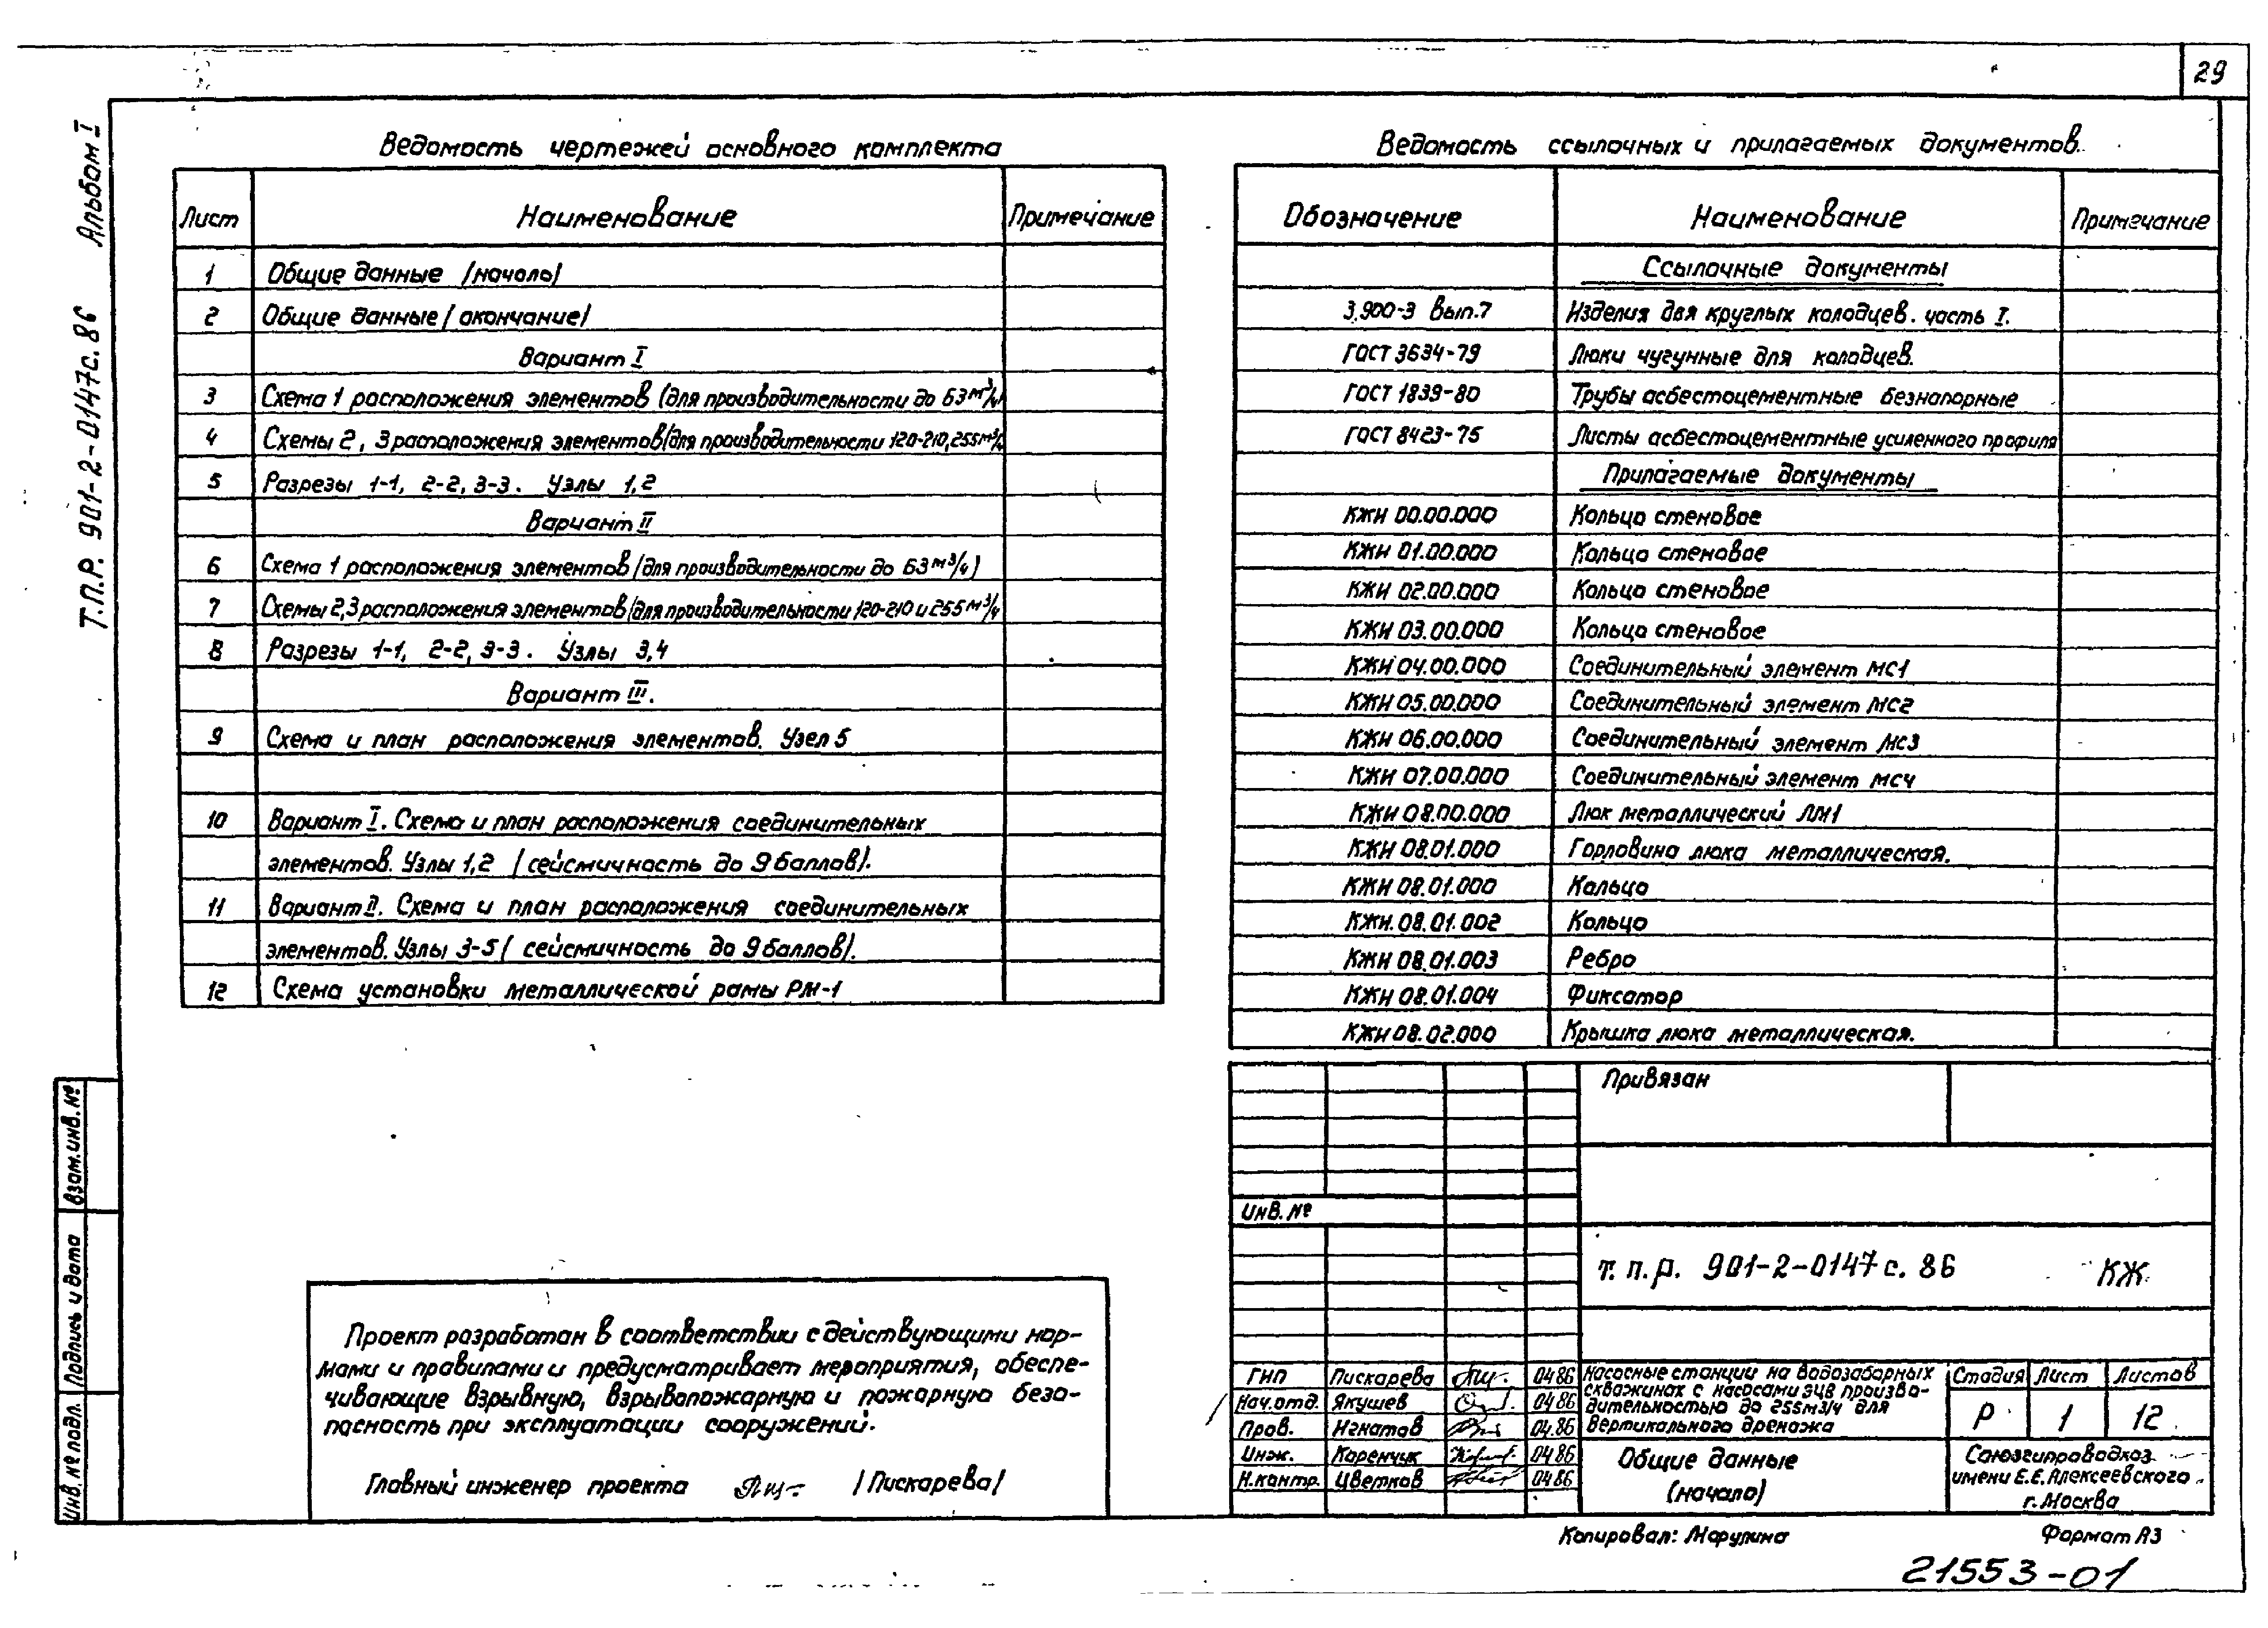 29
Т.П.Р. 901-2-0147с.86 Альбом I
Ведомость чертежей основного комплекта
Лист Наименование Примечание
1 Общие данные (начало)
2 Общие данные (окончание)
Вариант I
3 Схема 1 расположения элементов (для производительности до 63 м³/ч)
4 Схемы 2, 3 расположения элементов (для производительности 120-210, 255 м³/ч
5 Разрезы 1-1, 2-2, 3-3. Узлы 1,2
Вариант II
6 Схема 1 расположения элементов (для производительности до 63 м³/ч)
7 Схемы 2,3 расположения элементов (для производительности 120-210 и 255 м³/ч
8 Разрезы 1-1, 2-2, 3-3. Узлы 3,4
Вариант III.
9 Схема и план расположения элементов. Узел 5
10 Вариант I. Схема и план расположения соединительных
элементов. Узлы 1,2 (сейсмичность до 9 баллов).
11 Вариант II. Схема и план расположения соединительных
элементов. Узлы 3-5 (сейсмичность до 9 баллов).
12 Схема установки металлической рамы РМ-1
Ведомость ссылочных и прилагаемых документов.
Обозначение Наименование Примечание
Ссылочные документы
3.900-3 Вып.7 Изделия для круглых колодцев. часть I.
ГОСТ 3634-79 Люки чугунные для колодцев.
ГОСТ 1839-80 Трубы асбестоцементные безнапорные
ГОСТ 8423-75 Листы асбестоцементные усиленного профиля
Прилагаемые документы
КЖИ 00.00.000 Кольцо стеновое
КЖИ 01.00.000 Кольцо стеновое
КЖИ 02.00.000 Кольцо стеновое
КЖИ 03.00.000 Кольцо стеновое
КЖИ 04.00.000 Соединительный элемент МС1
КЖИ 05.00.000 Соединительный элемент МС2
КЖИ 06.00.000 Соединительный элемент МС3
КЖИ 07.00.000 Соединительный элемент МС4
КЖИ 08.00.000 Люк металлический ЛМ1
КЖИ 08.01.000 Горловина люка металлическая.
КЖИ 08.01.000 Кольцо
КЖИ.08.01.002 Кольцо
КЖИ 08.01.003 Ребро
КЖИ 08.01.004 Фиксатор
КЖИ 08.02.000 Крышка люка металлическая.
Проект разработан в соответствии с действующими нор-
мами и правилами и предусматривает мероприятия, обеспе-
чивающие взрывную, взрывопожарную и пожарную безо-
пасность при эксплуатации сооружений.
Главный инженер проекта (Пискарева)
Взам.инв.№
Подпись и дата
Инв.№ подл.
Привязан
Инв.№
т.п.р. 901-2-0147с.86 КЖ
ГИП Пискарева 04 86
Нач.отд. Якушев 04 86
Пров. Игнатов 04.86
Инж. Каренчук 04 86
Н.контр. Цветков 04 86
Насосные станции на водозаборных
скважинах с насосами ЭЦВ произво-
дительностью до 255м3/ч для
вертикального дренажа
Стадия Лист Листов
Р 1 12
Общие данные
(начало)
Союзгипроводхоз
имени Е.Е.Алексеевского
г.Москва
Копировал: Марулина Формат А3
21553-01